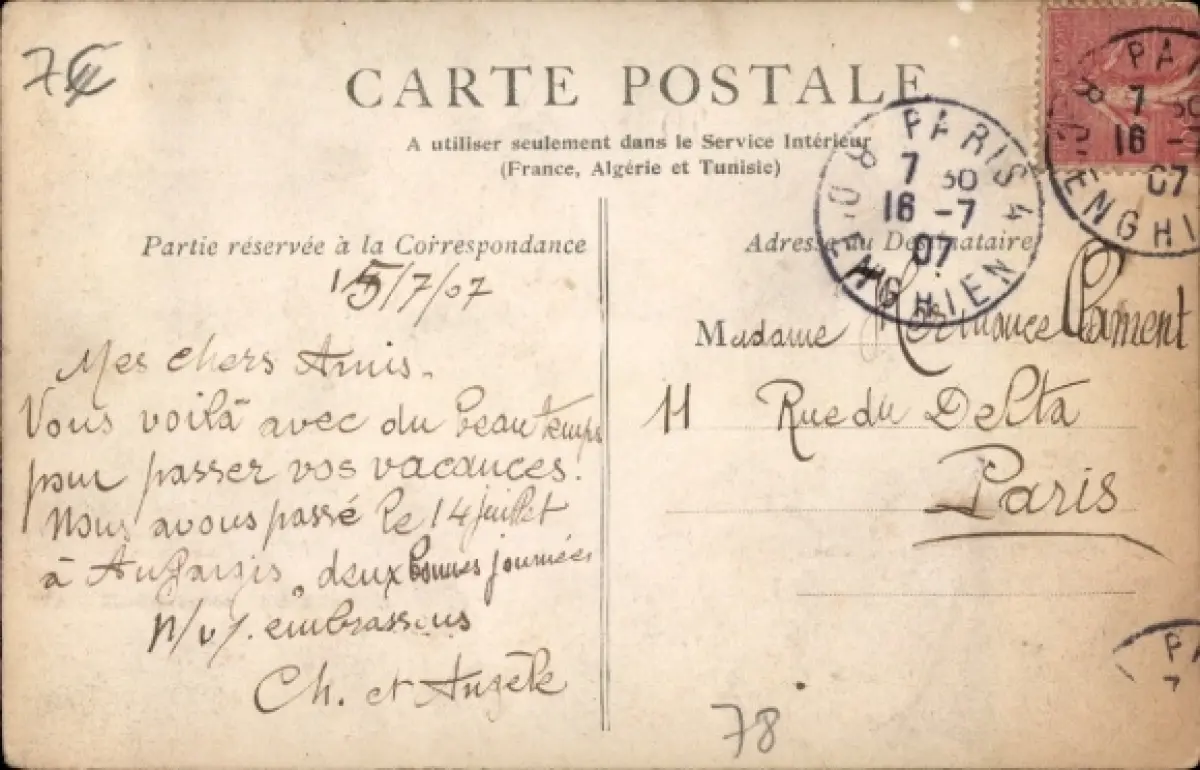 CARTE POSTALE
A utiliser seulement dans le Service Intérieur
(France, Algérie et Tunisie)
PARIS 4
7 30
16 -7
07
R. D'ENGHIEN
PA
7 30
16 -
07
R. D'ENGHI
Partie réservée à la Correspondance
15/7/07
Mes chers Amis.
Vous voilà avec du beau temps
pour passer vos vacances.
Nous avons passé le 14 juillet
à deux bonnes journées
n/v/. embrassons
Ch. et Angèle
Adresse du Destinataire
Madame Hermance Clament
11 Rue du Delta
Paris
PA
7
78